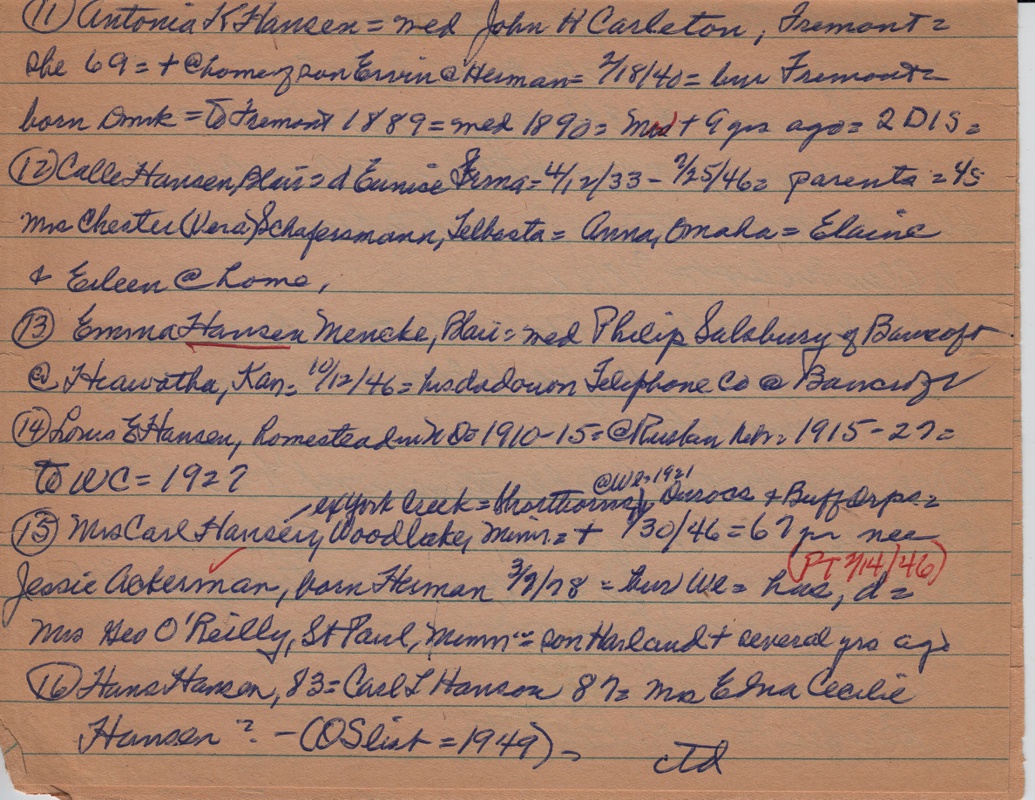 (11) Antonia K Hansen = med John H Carleton, Fremont =
she 69 = + @ home of son Ervin @ Herman = 2/18/40 = bur Fremont =
born Dmk = to Fremont 1889 = med 1890 = + 9 yrs ago = 2 D 1 S =
(12) Calle Hansen, Blair = d Eunice Irma = 4/12/33 - 2/25/46 = parents = 4s
Mrs Chester (Vera) Schafersmann, Telbasta = Anna, Omaha = Elaine
& Eileen @ home,
(13) Emma Hansen Mencke, Blair = med Philip Salsbury of Bancroft
@ Hiawatha, Kan = 10/12/46 = his dad own Telephone Co @ Bancroft
(14) Louis E Hansen, homestead in N D = 1910-15 = @ Ruskin Nebr = 1915-27 =
to WC = 1927
@ We = 1921
ex York Creek = Shorthorns, Durocs & Buff Orps =
(15) Mrs Carl Hansen, Woodlake, Minn = + 1/30/46 = 67 yr nee
(PT 2/14/46)
Jessie Ackerman, born Herman 3/2/78 = bur We = hus, d =
Mrs Geo O'Reilly, St Paul, Minn = son Harland + several yrs ago
(16) Hans Hansen, 83 = Carl L Hanson 87 = Mrs Edna Cecilie
Hansen ? - (OS list = 1949) =
ctd